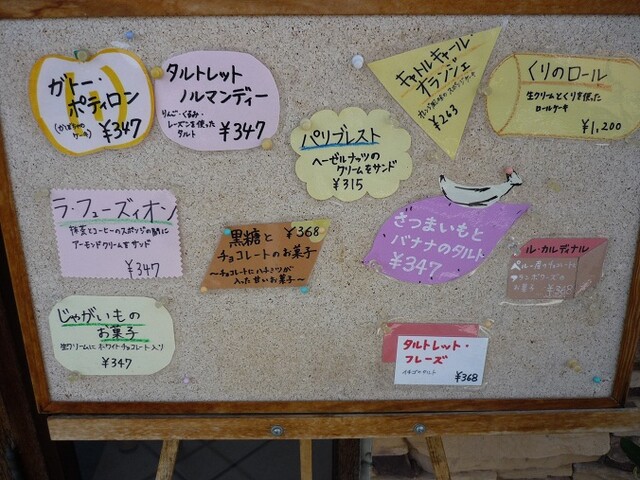 ガトー・
ポティロン
(かぼちゃの
ケーキ)
¥347
タルトレット
ノルマンディー
りんご・くるみ・
レーズンを使った
タルト
¥347
パリブレスト
ヘーゼルナッツの
クリームをサンド
¥315
キャトルキャール・
オランジェ
¥263
くりのロール
生クリームとくりを使った
ロールケーキ
¥1,200
ラ・フューズィオン
抹茶とコーヒーのスポンジの間に
アーモンドクリームをサンド
¥347
黒糖と
¥368
チョコレートのお菓子
〜チョコレートにハチミツが
入った甘いお菓子〜
さつまいもと
バナナのタルト
¥347
ル・カルディナル
お菓子
¥368
じゃがいもの
お菓子
生クリームにホワイトチョコレート入り
¥347
タルトレット・
フレーズ
イチゴのタルト
¥368